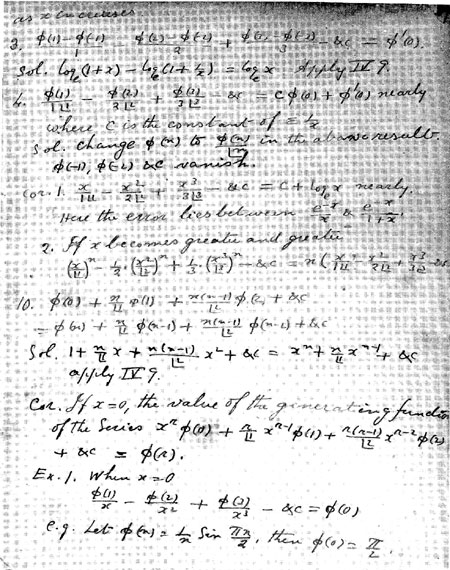 as x increases
3. φ(1)-φ(-1)/1 - φ(2)-φ(-2)/2 + φ(3)-φ(-3)/3 - &c = φ'(0).
Sol. log_e(1+x) - log_e(1+1/x) = log_e x Apply IV 9.
4. φ(1)/1|1 - φ(2)/2|2 + φ(3)/3|3 - &c = Cφ(0) + φ'(0) nearly
where C is the constant of Σ1/x
Sol. Change φ(n) to φ(n)/|n in the above result.
φ(-1), φ(-2) &c vanish.
Cor. 1. x/1|1 - x²/2|2 + x³/3|3 - &c = C + log x nearly.
Here the error lies between e^-x/x & e^-x/1+x.
2. If x becomes greater and greater
(x/|1)^n - 1/2 (x²/|2)^n + 1/3 (x³/|3)^n - &c = n(x/1|1 - x²/2|2 + x³/3|3 - &c
10. φ(0) + n/|1 φ(1) + n(n-1)/|2 φ(2) + &c
= φ(n) + n/|1 φ(n-1) + n(n-1)/|2 φ(n-2) + &c
Sol. 1 + n/|1 x + n(n-1)/|2 x² + &c = x^n + n/|1 x^n-1 + &c
apply IV 9.
Cor. If x=0, the value of the generating function
of the Series x^n φ(0) + n/|1 x^n-1 φ(1) + n(n-1)/|2 x^n-2 φ(2)
+ &c = φ(n).
Ex. 1. When x=0
φ(1)/x - φ(2)/x² + φ(3)/x³ - &c = φ(0)
e.g. Let φ(n) = 1/n Sin πn/2, then φ(0) = π/2.